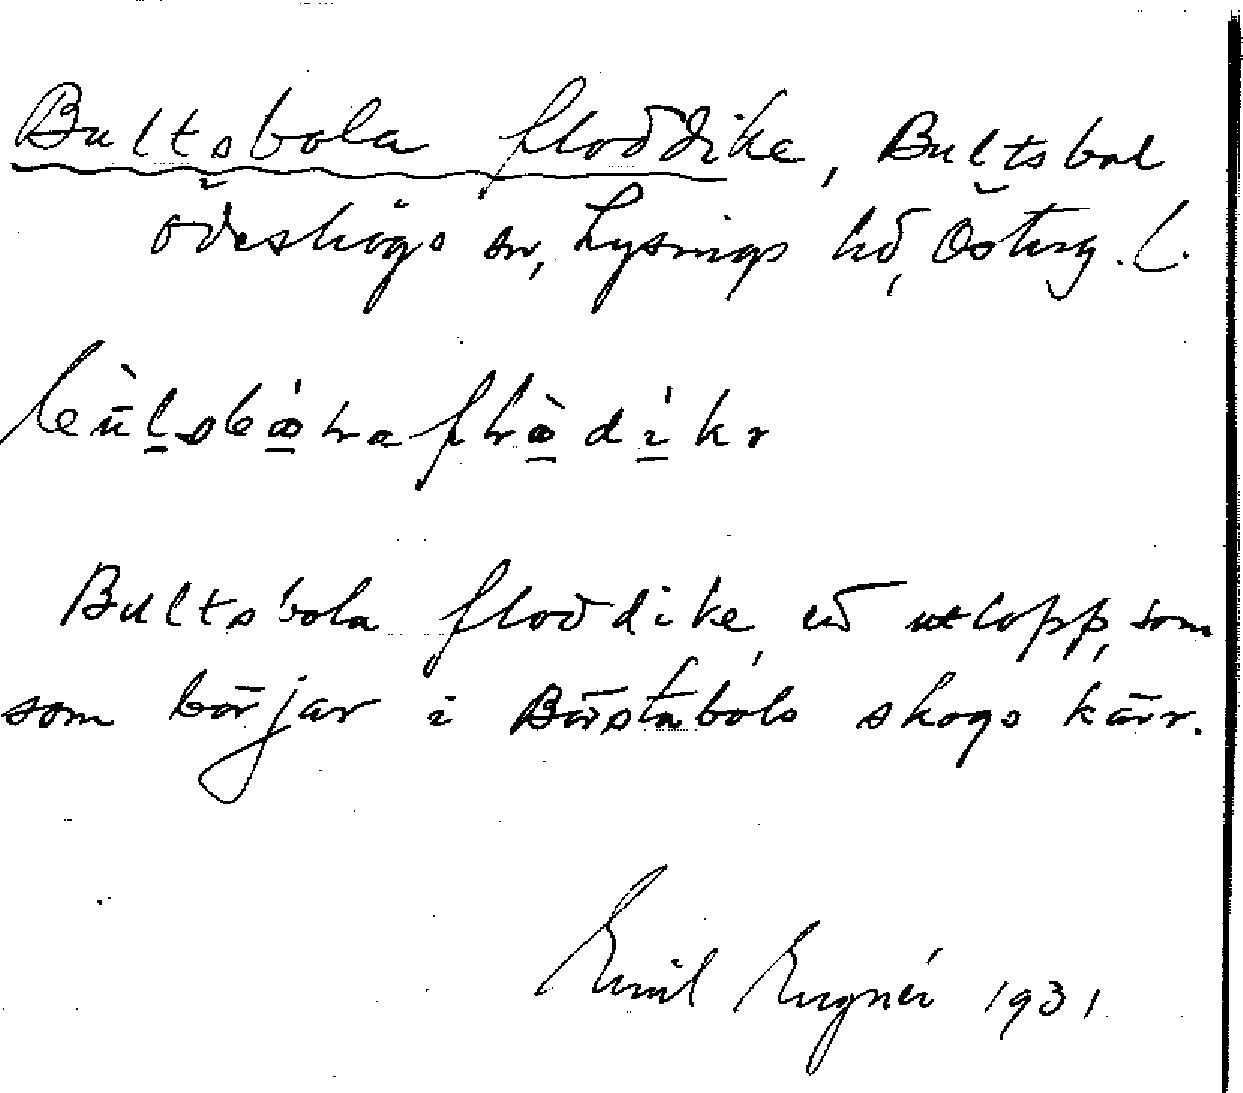 Bultsbola floddike, Bultsbol
Ödeshögs sn, Lysings hd, Österg. l.
Bultsbola floddike, ett utlopp, som
som börjar i Börstabols skogs kärr.
Emil 1931